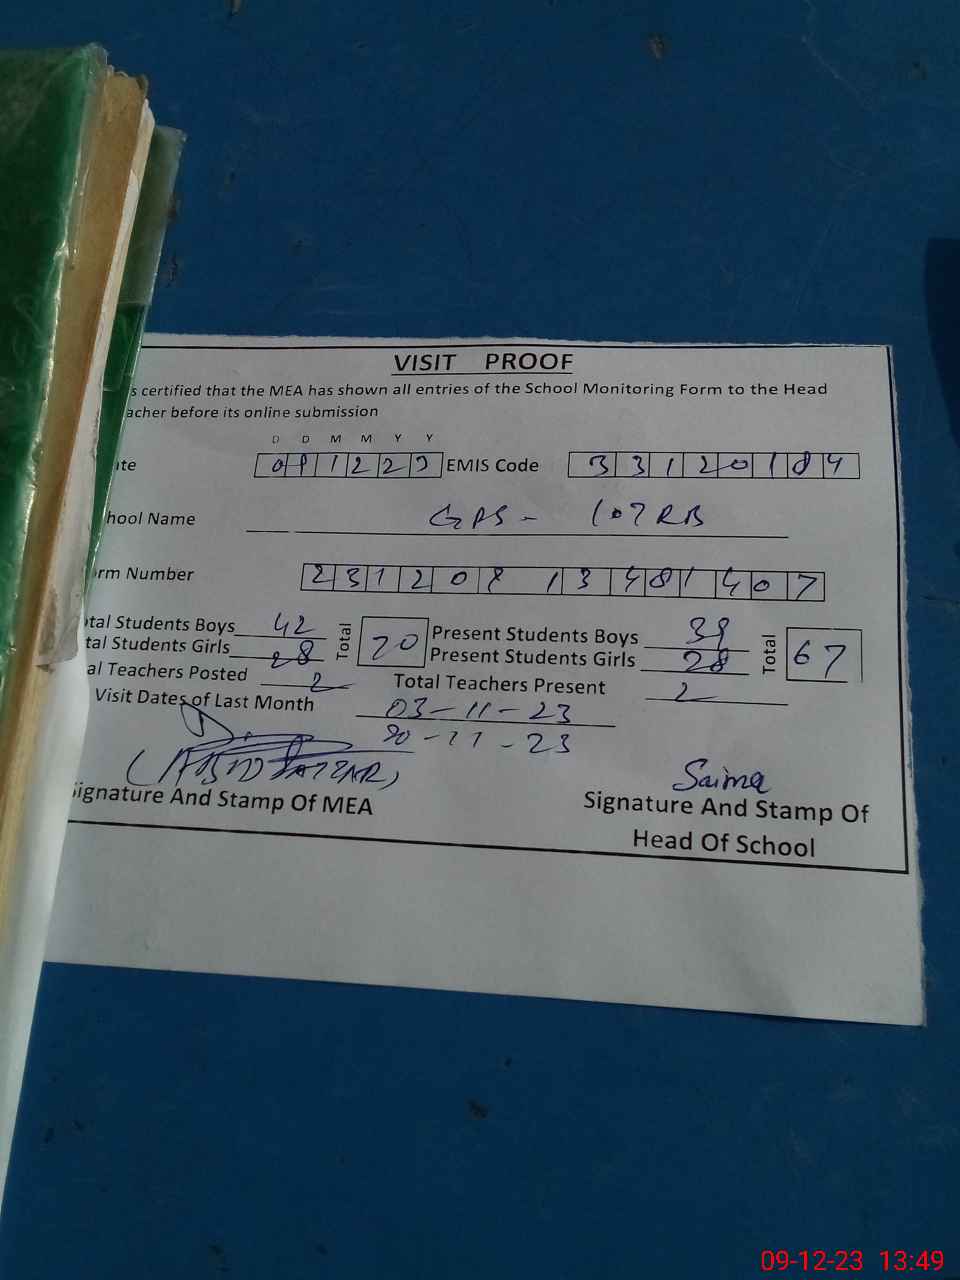 VISIT PROOF
s certified that the MEA has shown all entries of the School Monitoring Form to the Head
acher before its online submission
D D M M Y Y
te 091223 EMIS Code 33120184
hool Name GPS - 107 RB
rm Number 231208 13481407
tal Students Boys 42 Total 70 Present Students Boys 39 Total 67
tal Students Girls 28 Present Students Girls 28
al Teachers Posted 2 Total Teachers Present 2
Visit Dates of Last Month 03-11-23
-11-23
Saima
Signature And Stamp Of MEA Signature And Stamp Of
Head Of School
09-12-23 13:49